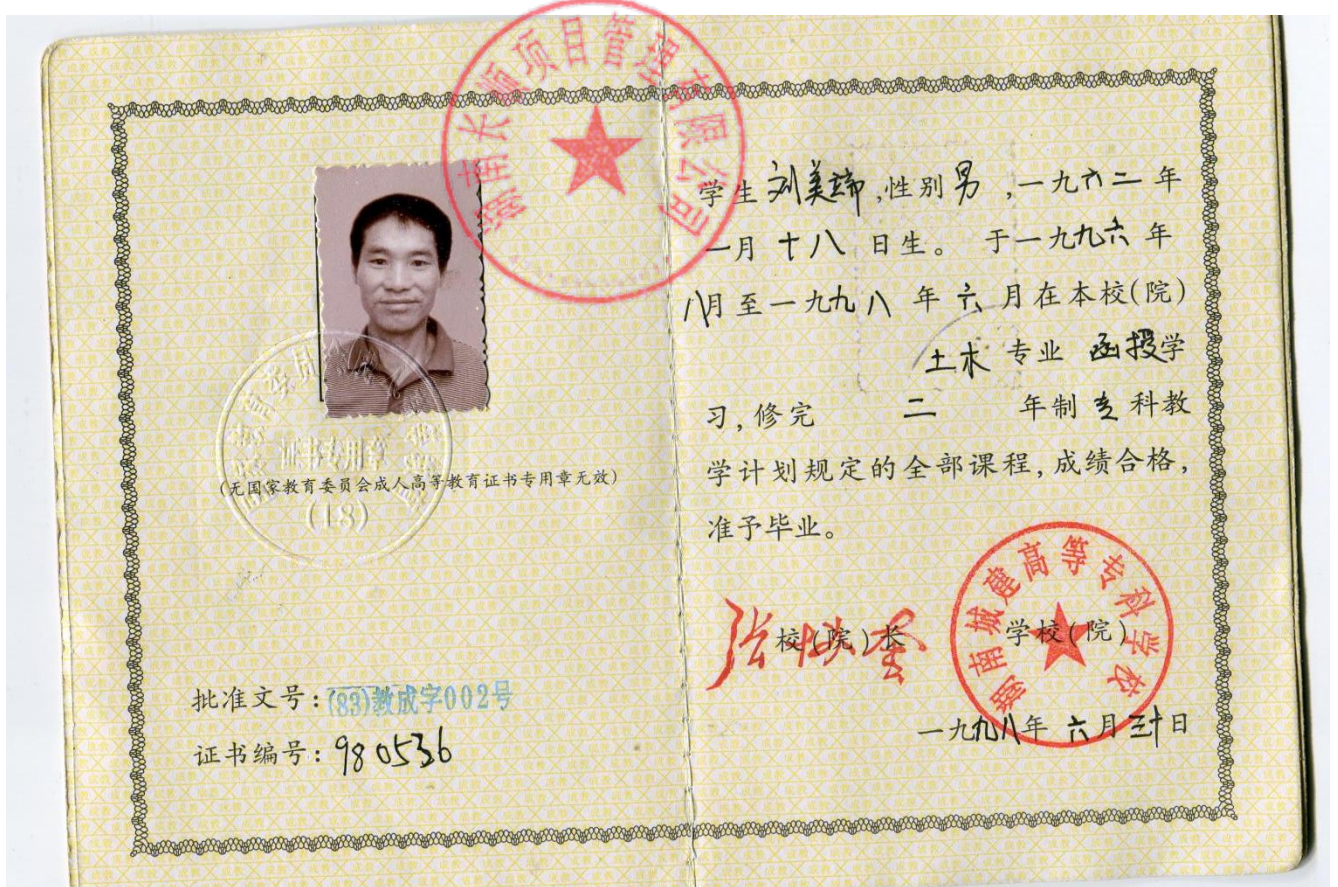 湖南长顺项目管理有限公司
证书专用章
(无国家教育委员会成人高等教育证书专用章无效)
(18)
批准文号：(83)教成字002号
证书编号：980536
学生 刘美瑞 ,性别 男 ,一九六二 年
一月 十八 日生。 于一九九六 年
八月至一九九八 年 六 月在本校(院)
土木 专业 函授学
习,修完 二 年制 专 科教
学计划规定的全部课程,成绩合格,
准予毕业。
校(院)长
学校(院)
湖南城建高等专科学校
一九九八年 六月三十日